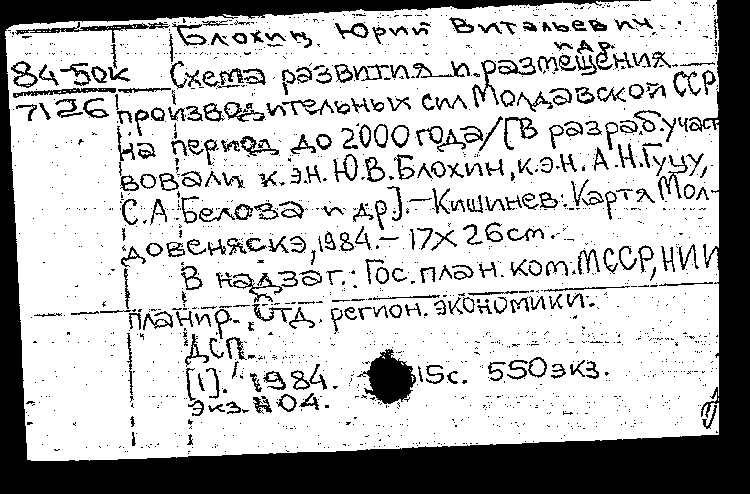 Блохин, Юрий Витальевич.
и др.
84-50к Схема развития и размещения
7126 производительных сил Молдавской ССР
на период до 2000 года/[В разраб. участ
вовали к.э.н. Ю.В.Блохин, к.э.н. А.Н.Гуцу,
С.А.Белова и др].-Кишинев: Картя Мол-
довеняскэ, 1984.- 17X26см.
В надзаг.: Гос. план. ком. МССР, НИИ
планир. Отд. регион. экономики.
ДСП.
[1]. 1984. 15с. 550экз.
экз. №04.